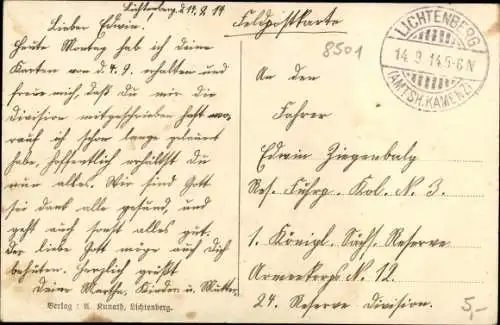 Lichtenberg, d. 14. 9. 14
Lieber Edwin.
Heute Montag hab ich deine
Karten vom d. 4. 9. erhalten und
freue mich, daß Du mir die
Division mitgeschrieben hast wo-
rauf ich schon lange gelauert
habe, hoffentlich erhältst Du
nun alles. Wir sind Gott
sei dank alle gesund, und
geht auch sonst alles gut.
Der liebe Gott möge auch dich
behüten. Herzlich grüßt
Deine Martha, Kinder u. Mutter
Verlag: A. Kunath, Lichtenberg.
Feldpostkarte
8501
LICHTENBERG
14.9.14.5-6N
(AMTSH. KAMENZ)
An den
Fahrer
Edwin Ziegenbalg
Res. Fuhrp. Kol. N. 3.
1. Königl. Sächs. Reserve
Armeekorps N. 12.
24. Reserve Division.
5,-